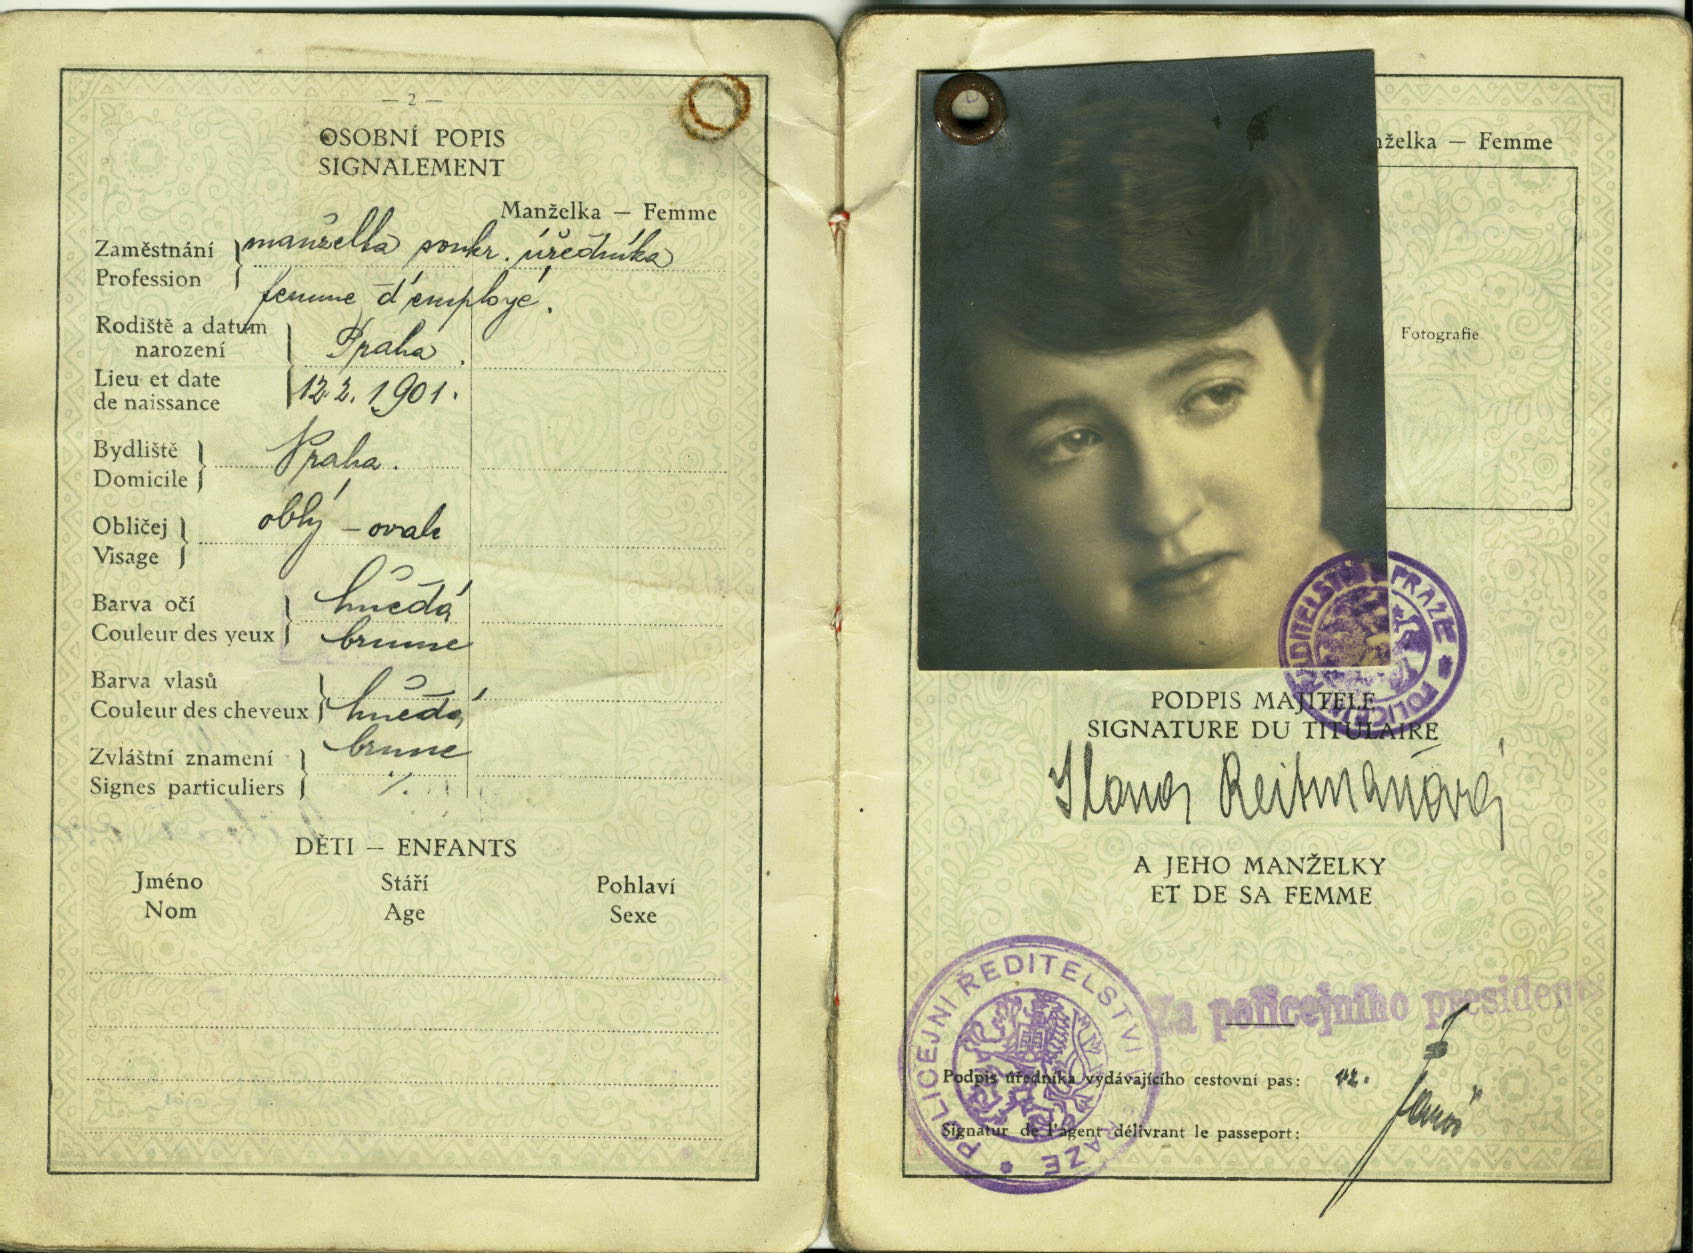 — 2 —
OSOBNÍ POPIS
SIGNALEMENT
Manželka — Femme
Zaměstnání
manželka soukr. úředníka
Profession
femme d'employé.
Rodiště a datum
narození
Praha.
Lieu et date
de naissance
12.2.1901.
Bydliště
Praha.
Domicile
Obličej
oblý – ovale
Visage
Barva očí
hnědá
Couleur des yeux
brune
Barva vlasů
Couleur des cheveux
hnědá
brune
Zvláštní znamení
Signes particuliers
./.
DĚTI — ENFANTS
Jméno Stáří Pohlaví
Nom Age Sexe
nželka — Femme
Fotografie
ŘEDITELSTVÍ PRAZE * POLICEJNÍ
PODPIS MAJITELE
SIGNATURE DU TITULAIRE
Ilona Reitmanová
A JEHO MANŽELKY
ET DE SA FEMME
POLICEJNÍ ŘEDITELSTVÍ V PRAZE *
Za policejního presidenta
Podpis úředníka vydávajícího cestovní pas:
Signatur de l'agent délivrant le passeport: